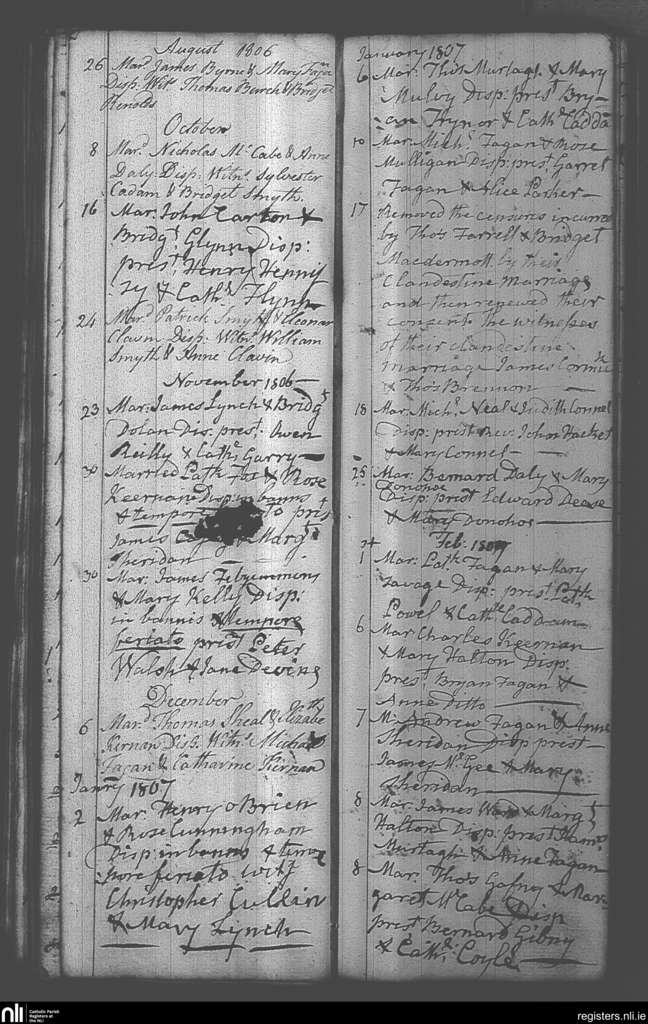 August 1806
26 Mard James Byrne & Mary
Disp. Witns Thomas Burck & Bridget
Renolds
October
8 Mard Nicholas Mc Cabe & Anne
Daly Disp: Witns. Sylvester
Cadam & Bridget Smyth.
16 Mar: John Carton &
Bridgt Glynn Disp:
prest: Henry Hennis
sy & Cath: Flynn
24 Mard Patrick Smyth & Eleonar
Clavin Disp: Witns William
Smyth & Anne Clavin
November 1806
23 Mar: James Lynch & Bridgt
Dolan Dis: prest: Owen
Reilly & Cath: Garry
30 Married Patk Fox & Rose
Keernan Disp: in bannis
& tempore to prist
James & Margt
Sheridan
30 Mar: James
& Mary Kelly Disp:
in bannis & tempore
feriato prist Peter
Walsh & Jane Devine
December
6 Mard Thomas Sheal & Elizabeth
Kirnan Disp. Witns Michael
Fagan & Catharine Kirnan
Janry 1807
2 Mar Henry o Brien
& Rose Cunningham
Disp: in bannis & tem
pore feriato wits
Christopher Cullin
& Mary Lynch
January 1807
6 Mar: Thos Murtagh & Mary
Mulvy Disp: prest Bry-
an Trynor & Cath: Caddam
10 Mar: Michl Fagan & Rose
Mulligan Disp: prest: Garret
Fagan & Alice
17 Removed the censures incurred
by Thos Farrell & Bridget
Macdermott by their
Clandestine Marriage
and then renewed their
consent. The witnesses
of their clandestine
marriage James
& Thos Brennon
18 Mar: Michl: Neal & Judith Connel
Disp: prist Rev: John Hacket
& Mary Connel
25 Mar: Bernard Daly & Mary
Donohoe
Disp: prist Edward Dease
& Mary Donohoe
Feb: 1807
1 Mar: Patk Fagan & Mary
Savage Disp: prest Patk
Powel & Cath: Caddam
6 Mar Charles Keernan
& Mary Halton Disp:
prest Bryan Fagan &
Anne Ditto
7 Mr Andrew Fagan & Anne
Sheridan Disp prest
James Mc Gee & Mary
Sheridan
8 Mar: James & Margt
Halton Disp: prest
Murtagh & Anne Fagan
8 Mar: Thos Gafney & Mar-
garet Mc Cabe Disp
prest Bernard Gibny
& Cath: Coyle
nli
Catholic Parish
Registers at
the NLI
registers.nli.ie